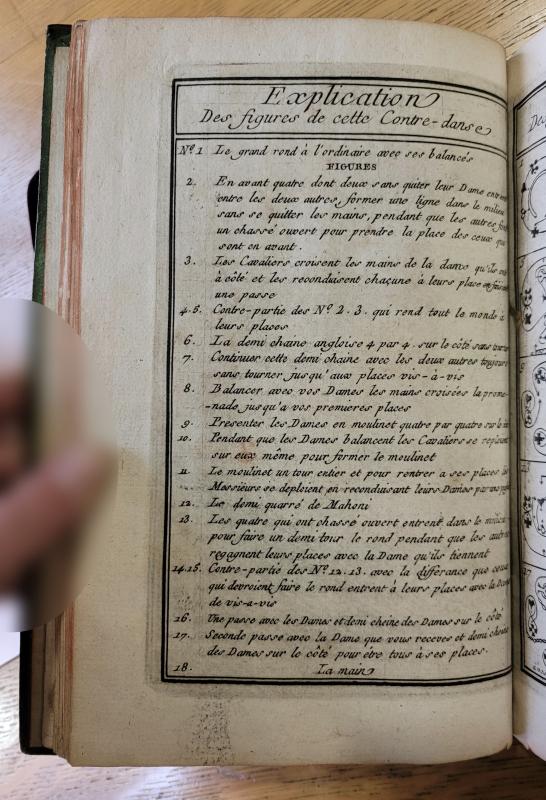 Explication
Des figures de cette Contre-danse
Nº. 1 Le grand rond à l'ordinaire avec ses balancés
FIGURES
2. En avant quatre dont deux sans quiter leur Dame
entre les deux autres, former une ligne dans le milieu
sans se quitter les mains, pendant que les autres font
un chassé ouvert pour prendre la place des ceux qui
sont en avant.
3. Les Cavaliers croisent les mains de la dame qu'ils ont
à côté et les reconduisent chaçune à leurs place en faisant
une passe
4.5. Contre-partie des Nº. 2. 3. qui rend tout le monde à
leurs places
6. La demi chaine angloise 4 par 4. sur le côté sans tourner
7. Continuer cette demi chaine avec les deux autres toujours
sans tourner jusqu'aux places vis-à-vis
8. Balancer avec vos Dames les mains croisées la prome-
-nade jusqu'a vos premieres places
9. Presenter les Dames en moulinet quatre par quatre sur le
10. Pendant que les Dames balancent les Cavaliers se
sur eux même pour former le moulinet
11. Le moulinet un tour entier et pour rentrer a ses places les
Messieurs se deploient en reconduisant leurs Dames par
12. Le demi quarré de Mahoni
13. Les quatre qui ont chassé ouvert entrent dans le milieu
pour faire un demi tour le rond pendant que les autres
regagnent leurs places avec la Dame qu'ils tiennent
14.15. Contre-partie des Nº. 12. 13. avec la différance que ceux
qui devroient faire le rond entrent à leurs places avec la Dame
de vis-a-vis
16. Une passe avec les Dames et demi cheine des Dames sur le côté
17. Seconde passe avec la Dame que vous recevés et demi cheine
des Dames sur le côté pour être tous à ses places.
18. La main